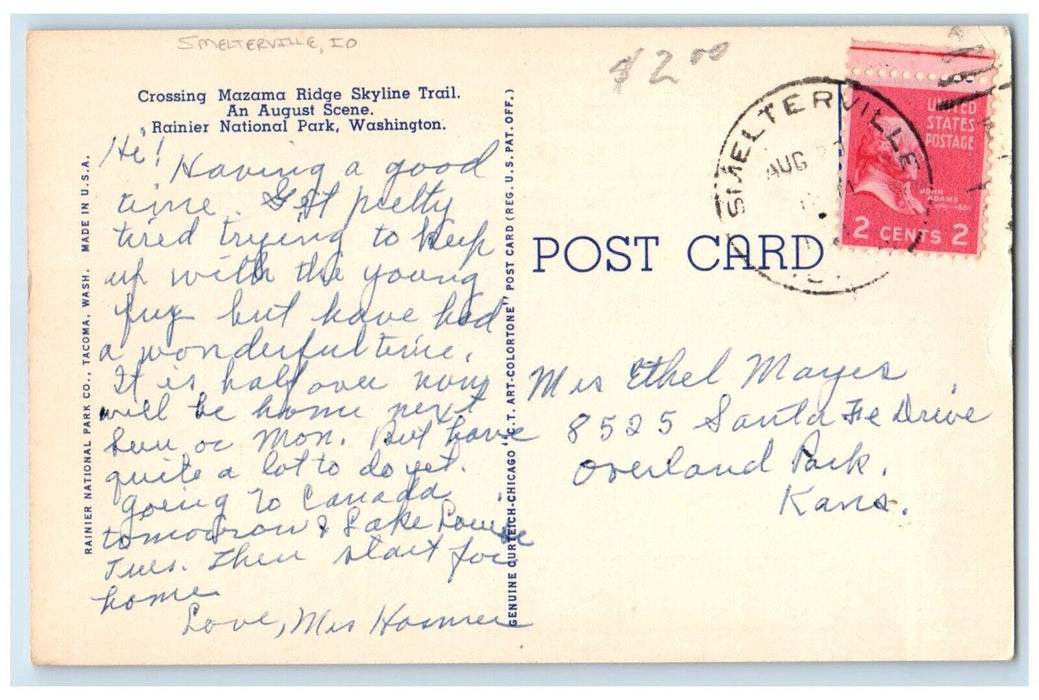 SMELTERVILLE, ID
$2.00
Crossing Mazama Ridge Skyline Trail.
An August Scene.
Rainier National Park, Washington.
Hi!
Having a good
time. Get pretty
tired trying to keep
up with the young
fry but have had
a wonderful time.
It is half over now
will be home next
Sun or Mon. But have
quite a lot to do yet.
going to Canada
tomorrow & Lake Louise
Tues. Then start for
home.
Love, Mrs
RAINIER NATIONAL PARK CO., TACOMA, WASH. MADE IN U.S.A.
GENUINE CURTEICH-CHICAGO "C.T. ART-COLORTONE" POST CARD (REG. U.S. PAT. OFF.)
POST CARD
SMELTERVILLE
AUG
UNITED
STATES
POSTAGE
JOHN
ADAMS
2 CENTS 2
Mrs Ethel Mayes
8525 Santa Fe Drive
Overland Park,
Kans.